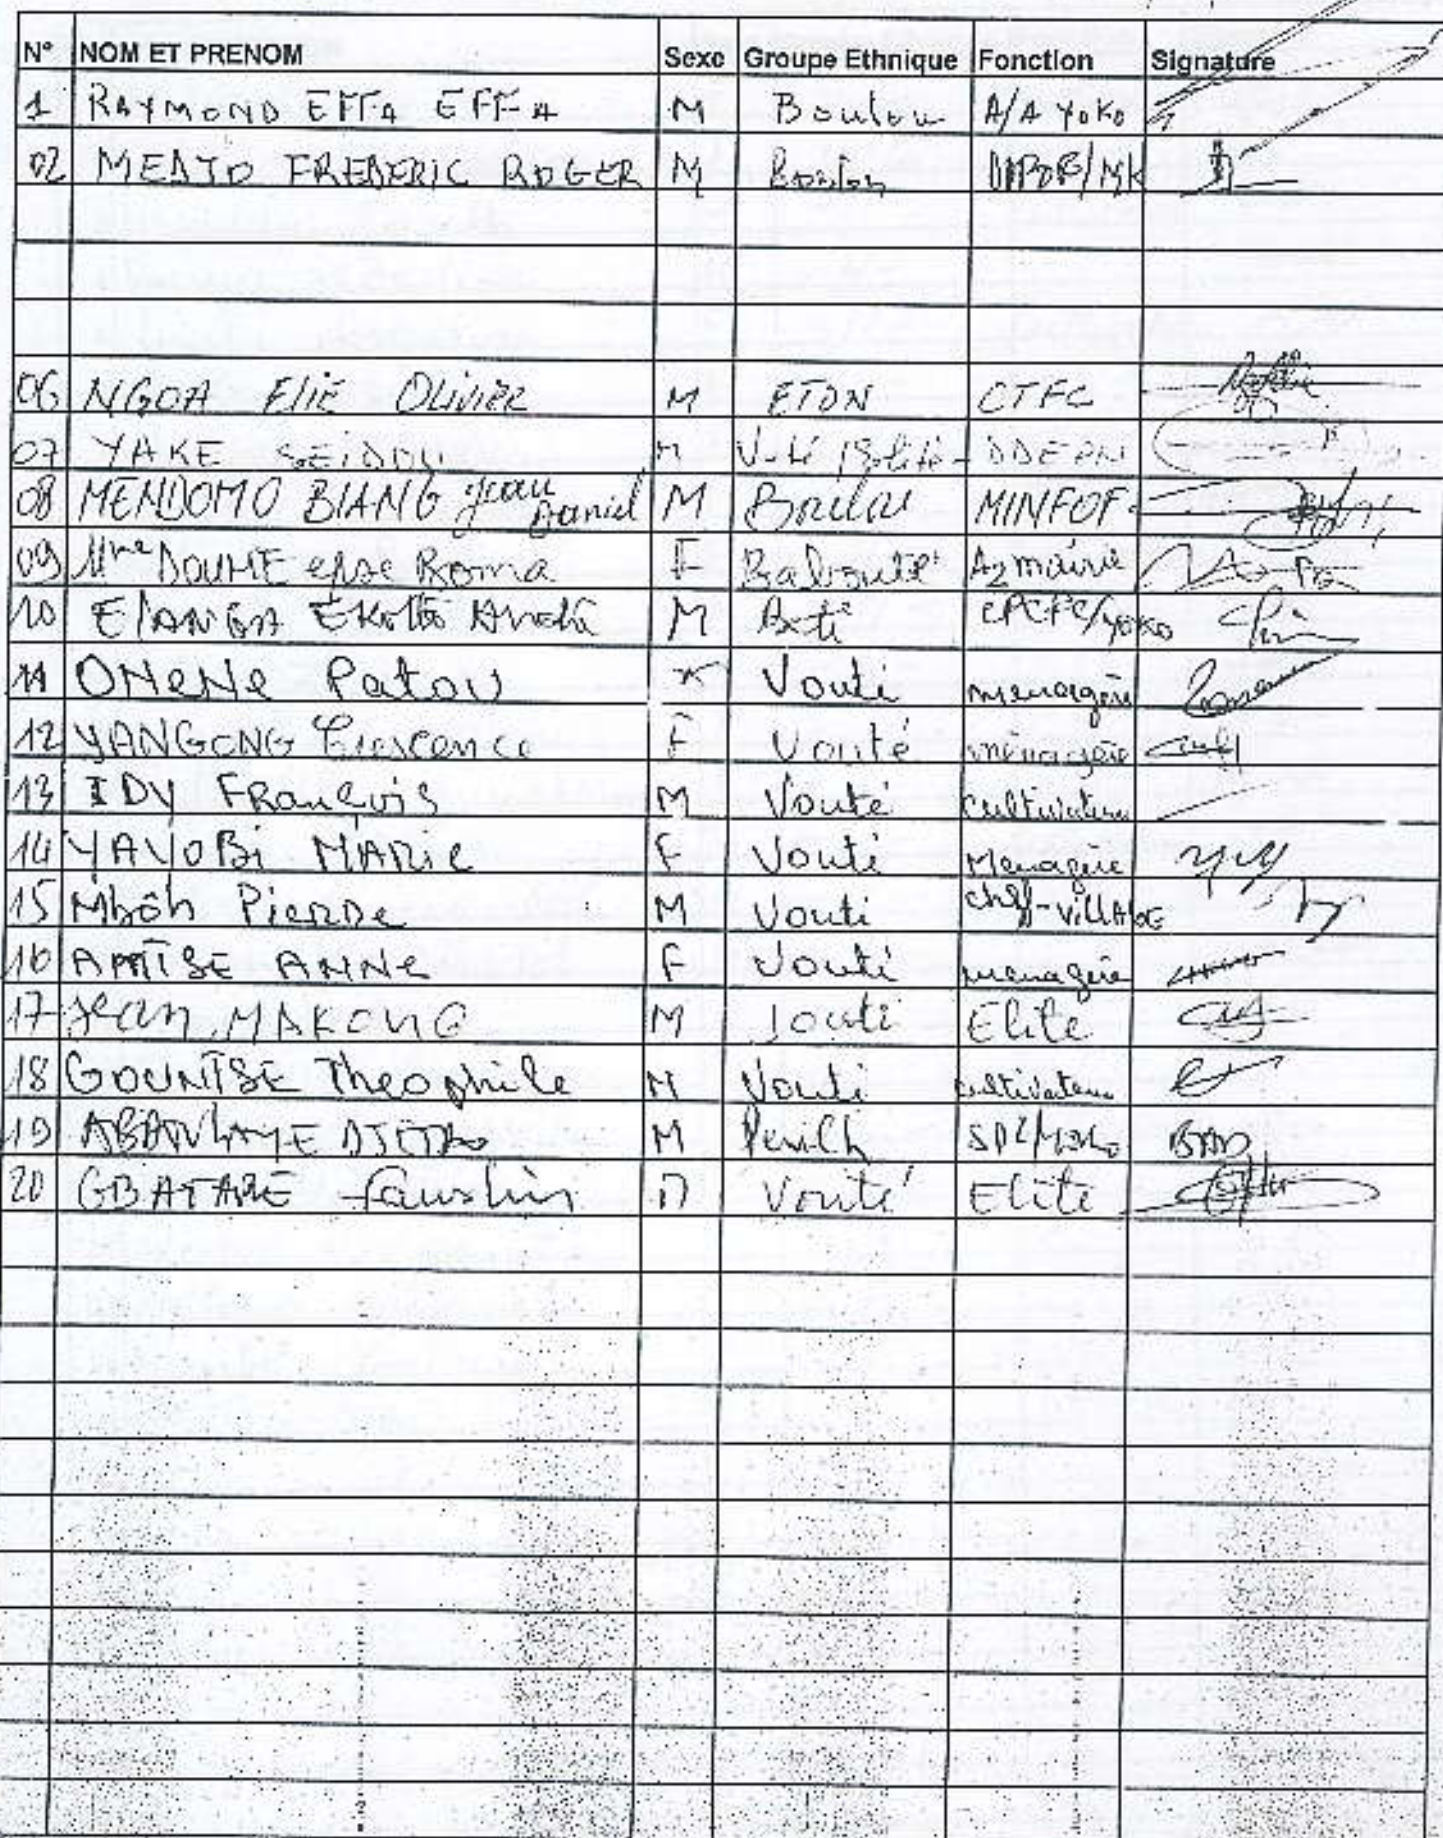 N° NOM ET PRENOM Sexe Groupe Ethnique Fonction Signature
1 RAYMOND EFFA EFFA M Boulou A/A YoKo
02 FREDERIC ROGER M Boulou
06 NGOA Elie OLivier M ETON CTFC
07 YAKE SEIDOU M
08 MENDOMO BIANG Jean Daniel M Boulou MINFOF
09 Mme DOUME epse Roma F Baboute A2 mairie
10 ELANGA M Beti
11 ONeNe Patou Vouti menagère
12 YANGONG Crescence F Vouté ménagère
13 IDY François M Vouté cultivateur
14 YAYOBi MARie F Vouti Menagère
15 Mboh PieRRe M Vouti cheff-villAGE
16 ANNe F Vouti menagère
17 Jean MAKONG M Vouti Elite
18 GOUNTSE Theophile M Vouti cultivateur
19 M
20 GBATARE faustin M Vouté Elite